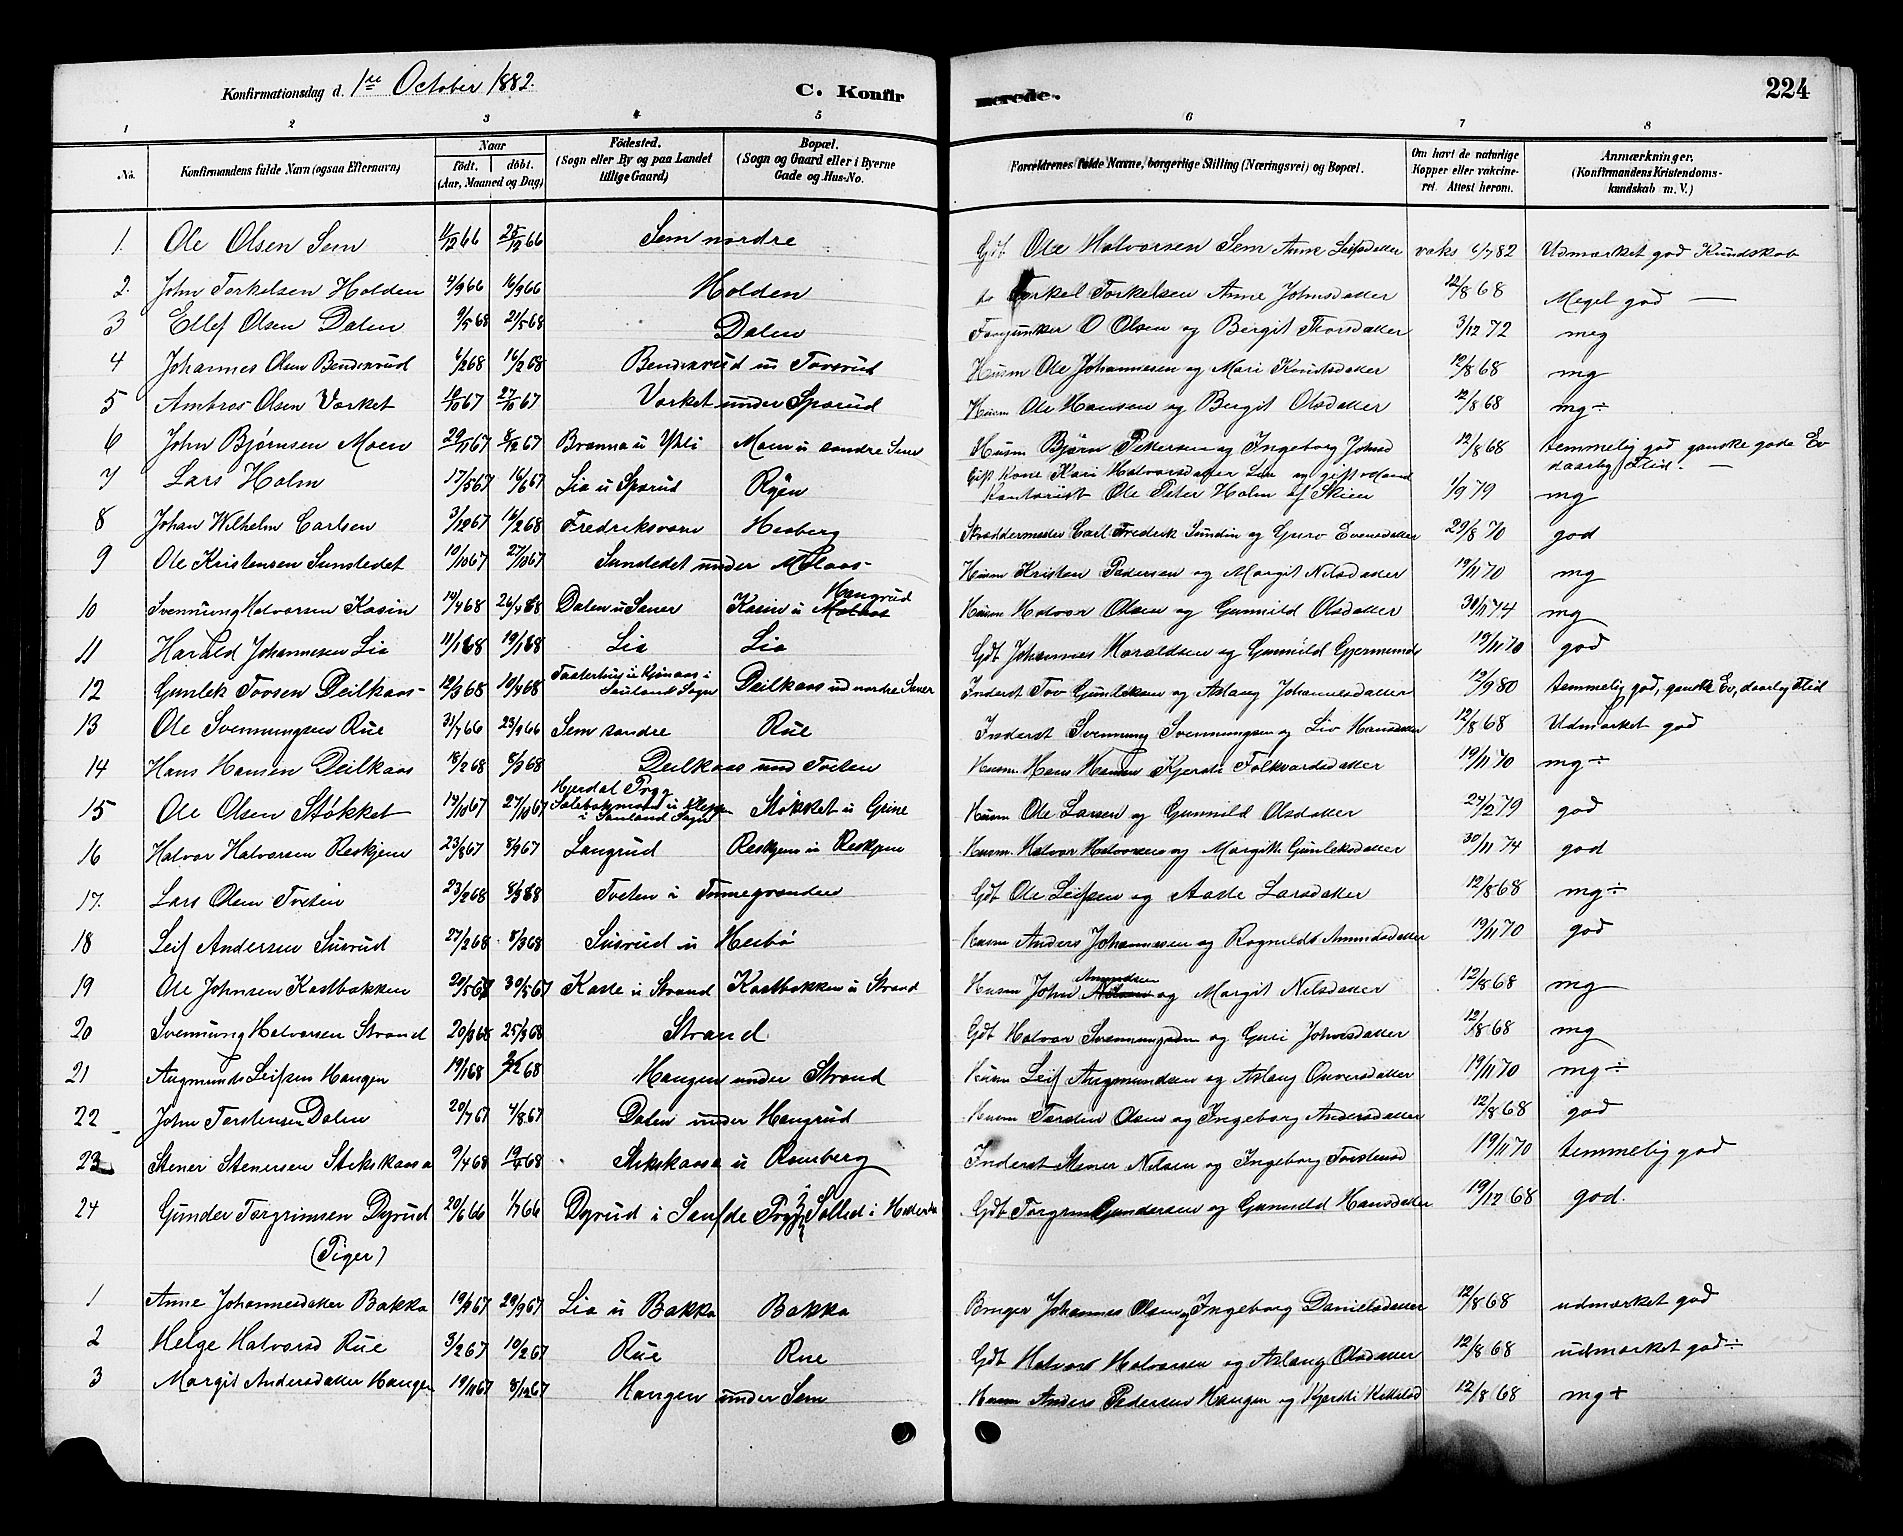 Konfirmationsdag d. 1ste October 1882.
C. Konfir merede. 224
1 2 3 4 5 6 7 8
No. Konfirmandens fulde Navn (ogsaa Efternavn) Naar født. døbt. (Aar, Maaned og Dag) Födested. (Sogn eller By og paa Landet tillige Gaard) Bopæl. (Sogn og Gaard eller i Byerne Gade og Hus-No. Forældrenes fulde Navne, borgerlige Stilling (Næringsvei) og Bopæl. Om havt de naturlige Kopper eller vakcineret. Attest herom. Anmærkninger. (Konfirmandens Kristendomskundskab m. V.)
1. Ole Olsen Sem 11/12 66 25/12 66 Sem nordre Gdt Ole Halvorsen Sem Anne Leifsdatter vaks 6/7 82 Udmærket god Kundskab
2. John Torkelsen Holden 4/9 66 16/9 66 Holden do Torkel Torkelsen Anne Johnsdatter 12/8 68 Meget god —
3 Ellef Olsen Dalen 9/5 68 21/5 68 Dalen O Olsen og Bergit Thorsdatter 3/12 72 meg
4 Johannes Olsen 6/2 68 16/2 68 u Husm Ole Johannesen og Mari Knutsdatter 12/8 68 mg
5 Ambros Olsen Varket 10/10 67 27/10 67 Varket under Sparud Husm Ole Hansen og Bergit Olsdatter 12/8 68 mg ÷
6 John Bjørnsen Moen 29/11 67 8/12 67 Branna u Ytli Moen u søndre Sem Husm Bjørn Pettersen og Ingeborg Johnsd 12/8 68 temmelig god ganske gode Ev
daarlig Flid. —
7 Lars Holm 17/5 67 16/6 67 Lia u Sparud Ryen Gift Kone Kari Halvorsdatter Lia og gift
Kontorist Ole Peter Holm af Skien 1/9 79 mg
8 Johan Wilhelm Carlsen 3/12 67 16/2 68 Fredriksværn Hesberg Skræddermester Carl Frederik Sundin og Guro Evensdatter 29/8 70 god
9 Ole Kristensen Sundedet 10/10 67 27/10 67 Sundedet under Mælaas Husm Kristen Pedersen og Margit Nilsdatter 19/11 70 mg
10 Svennung Halvorsen Kasin 14/4 68 26/4 68 Dalen u Sauer Kasin u Haugrud Husm Halvor Olsen og Gunnild Olsdatter 30/11 74 mg
11 Harald Johannesen Lia 11/1 68 19/1 68 Lia Lia Gdt Johannes Haraldsen og Gunnild Gjermunds 19/11 70 god
12 Gunlek Tovsen Deilkaas 12/3 68 10/4 68 i Sauland Sogn Deilkaas und nordre Sauer Inderst Tov Gunleksen og Aslaug Johannesdatter 12/9 80 temmelig god, ganske Ev, daarlig Flid
13 Ole Svennungsen Rue 31/7 66 23/9 66 Sem søndre Rue Inderst Svennung Svennungsen og Liv Hansdatter 12/8 68 Udmærket god
14 Hans Hansen Deilkaas 18/2 68 8/3 68 Deilkaas und Tveten Husm. Hans Hansen Kjersti Folkvardsdatter 19/11 70 mg ÷
15 Ole Olsen Støkket 14/10 67 27/10 67 Hjerdal Præg
i Sauland Sogn Støkket u Grine Husm Ole Larsen og Gunnild Olsdatter 24/2 79 god
16 Halvor Halvorsen Reskjem 23/8 67 8/9 67 Langrud Reskjem u Reskjem Husm. Halvor Halvorsen og Margith Gunleksdatter 30/11 74 god
17. Lars Olsen Tveten 23/2 68 8/3 68 Tveten i Tinnegranden Gdt Ole Leifsen og Aaste Larsdatter 12/8 68 mg ÷
18 Leif Andersen Susrud 27/2 68 8/3 68 Susrud u Hesbø Husm Anders Johannesen og Ragnild Amundsdatter 19/11 70 god
19 Ole Johnsen Kastbakken 20/5 67 30/5 67 Kaste u Strand Kastbakken u Strand Husm John Amundsen og Margit Nilsdatter 12/8 68 mg
20 Svennung Halvorsen Strand 20/3 68 25/3 68 Strand Gdt Halvor Svennungsen og Guri Johnsdatter 12/8 68 mg
21 Augmund Leifsen Haugen 19/1 68 2/2 68 Haugen under Strand Husm Leif Augmundsen og Aslaug Onversdatter 19/11 70 mg ÷
22 John Torstensen Dalen 20/7 67 4/8 67 Dalen under Haugrud Husm Torsten Olsen og Ingeborg Andersdatter 12/8 68 god
23 Stener Stenersen Stikskaasa 9/4 68 19/4 68 Stikskaasa u Ramberg Inderst Stener Nilsen og Ingeborg Torstensd 19/11 70 temmelig god
24 Gunder Torgrimsen Dyrud 20/6 66 1/7 66 Dyrud i Sanfde Præg Solled i Gdt Torgrim Gundersen og Gunnild Hansdatter 19/12 68 god.
(Piger)
1 Anne Johannesdatter Bakka 19/9 67 29/9 67 Lia u Bakka Bakka Bruger Johannes Olsen og Ingeborg Danielsdatter 12/8 68 udmærket god
2 Helge Halvorsd Rue 3/2 67 10/2 67 Rue Rue Gdt Halvor Halvorsen og Aslaug Olsdatter 12/8 68 udmærket god ÷
3 Margit Andersdatter Haugen 19/11 67 8/12 67 Haugen under Sem Husm Anders Pedersen Haugen og Kjersti 12/8 68 mg +